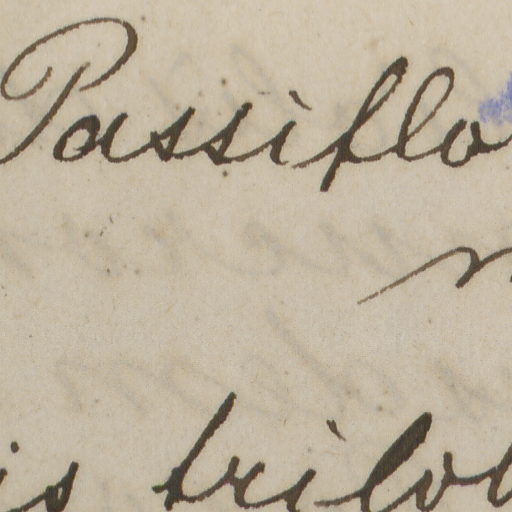 Passiflo
is trilo